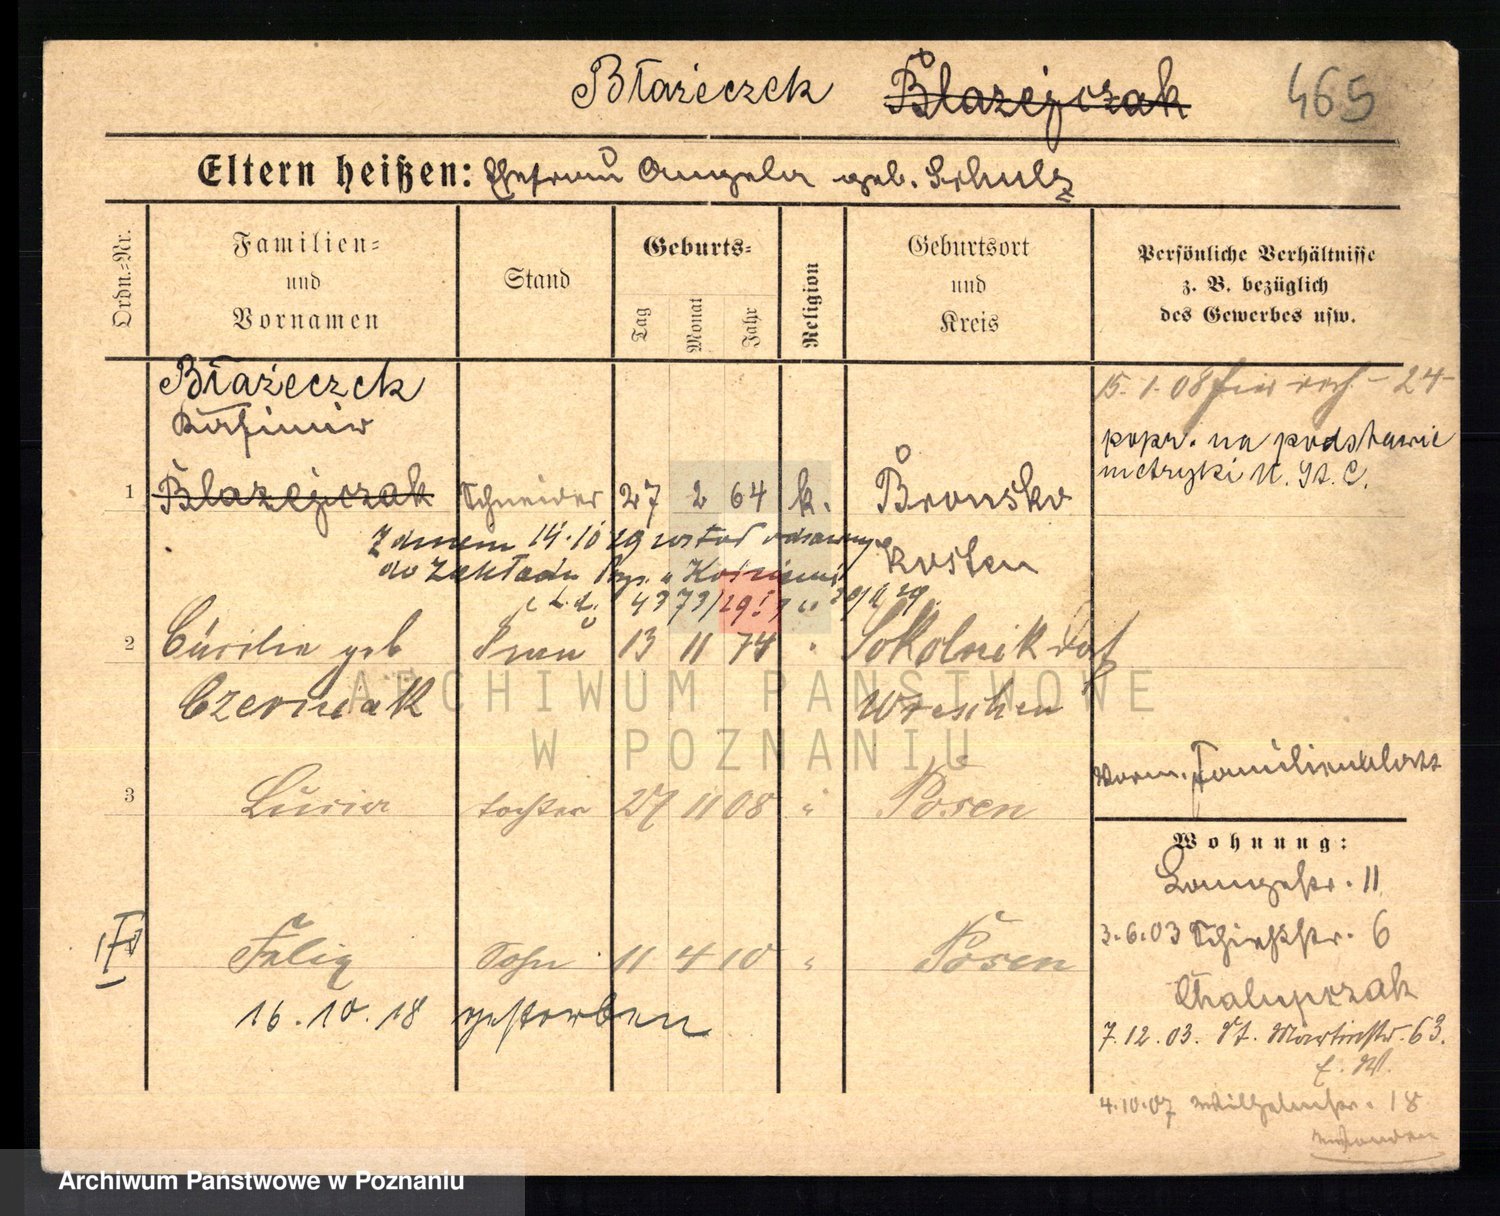 Błażeczek Blazejczak 465
Eltern heißen: Ehefrau Angela geb. Schulz
Ordn.-Nr.
Familien- und Vornamen
Stand
Geburts-
Tag Monat Jahr
Religion
Geburtsort und Kreis
Persönliche Verhältnisse z. B. bezüglich des Gewerbes usw.
Błażeczek
Kasimir
1 Blazejczak Schneider 27 2 64 k. Bronsko
Kosten
Z dniem 14.10 29 został
do Zakładu
4373/29
2 Cäcilie geb Frau 13 11 74 " Sokolnik
Czerniak Wreschen
3 Lucia Tochter 27 11 08 " Posen
Felix Sohn 11 4 10 " Posen
16.10.18 gestorben
15.1.08 - 24 -
popr. na podstawie
metryki U. St. C.
Familienblatt
Wohnung:
Langestr. 11
3.6.03 Schießstr. 6
Chalupczak
7.12.03. St. Martinstr. 63.
4.10.07 Wilhelmstr. 18
ARCHIWUM PAŃSTWOWE
W POZNANIU
Archiwum Państwowe w Poznaniu